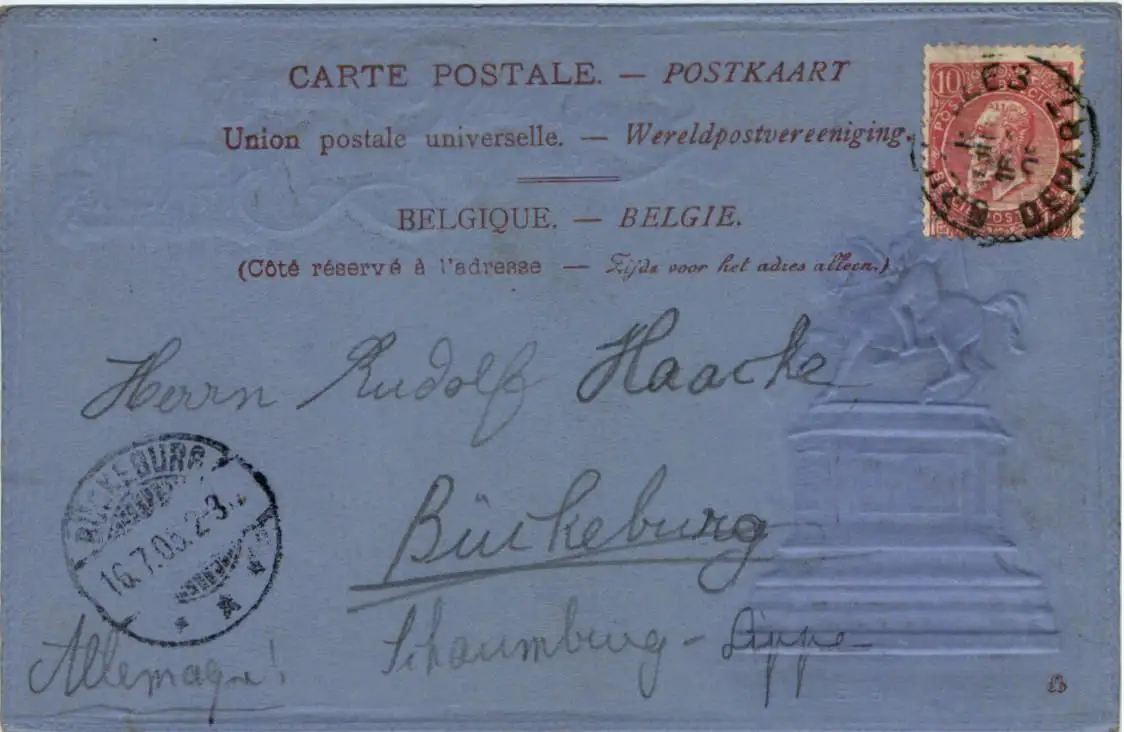 CARTE POSTALE. — POSTKAART
Union postale universelle. — Wereldpostvereeniging.
BELGIQUE. — BELGIE.
(Côté réservé à l'adresse — Zijde voor het adres alleen.)
10
DEPART
Herrn Rudolf Haacke
BÜCKEBURG
16.7.05.2-3
Bückeburg
Schaumburg-Lippe
Allemagne!